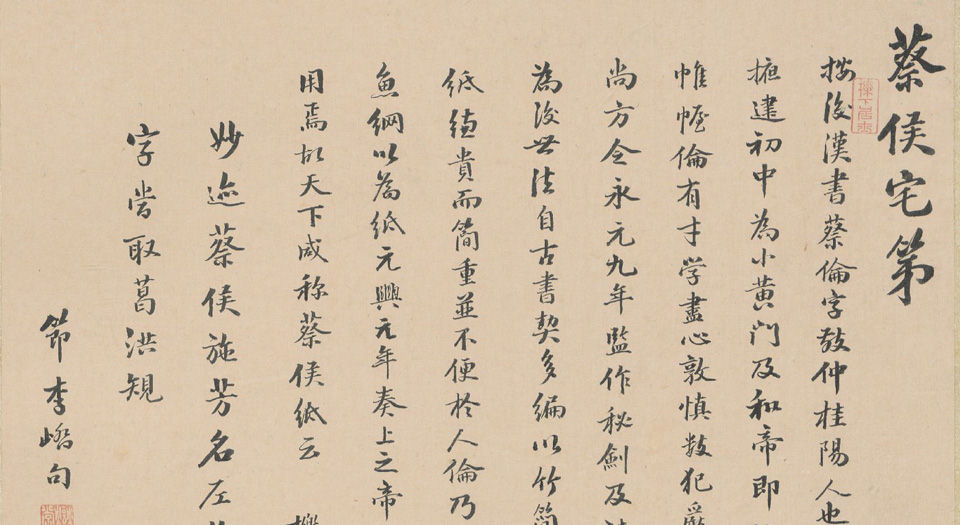 蔡侯宅第
按後漢書蔡倫字敬仲桂陽人也
掖建初中為小黄门及和帝即
帷幄倫有才学盡心敦慎数犯嚴
尚方令永元九年監作秘劍及
為後世法自古書契多编以竹简
纸缣貴而简重並不便於人倫乃
魚網以為纸元興元年奏上之帝
用焉故天下咸称蔡侯纸云
妙迹蔡侯施芳名左
字甞取葛洪規
節李嶠句